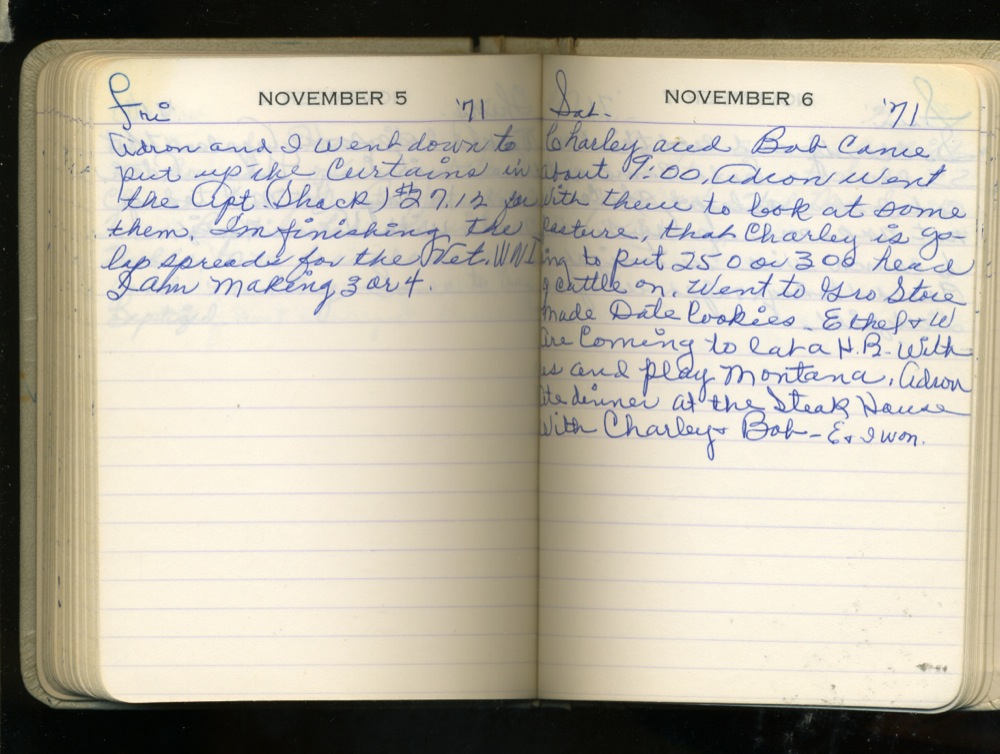 Fri NOVEMBER 5 '71
Adron and I went down to
put up the Curtains in
the Apt (Shack) $27.12 for
them. I'm finishing the
lap spreads for the Vet. WWI
I am making 3 or 4.
Sat. NOVEMBER 6 '71
Charley and Bob Came
about 9:00. Adron went
with them to look at some
pasture, that Charley is go-
ing to put 250 or 300 head
of cattle on. Went to Gro Store
made Date Cookies. Ethel & W
are Coming to eat a H.B. with
us and play Montana. Adron
ate dinner at the Steak House
with Charley & Bob - E & I won.